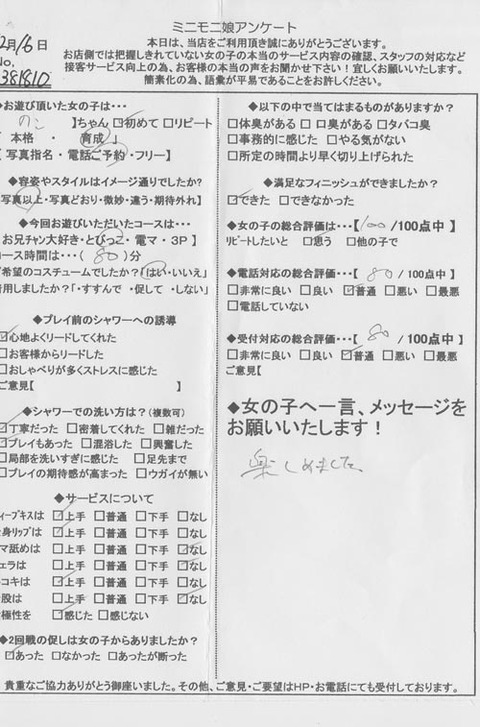 ミニモニ娘アンケート
2月16日
No.
381810
本日は、当店をご利用頂き誠にありがとうございます。
お店側では把握しきれていない女の子の本当のサービス内容の確認、スタッフの対応など
接客サービス向上の為、お客様の本当の声をお聞かせ下さい！宜しくお願いいたします。
簡素化の為、語彙が平易であることをお許しください。
◆お遊び頂いた女の子は・・・
】ちゃん ☑初めて □リピート
本格 ・ 育成 」
【 写真指名・電話ご予約・フリー】
◆容姿やスタイルはイメージ通りでしたか?
写真以上・写真どおり・微妙・違う・期待外れ】
◆今回お遊びいただいたコースは・・・
お兄チャン大好き・とびっこ・電マ・3P 】
コース時間は・・・( 80 )分
ご希望のコスチュームでしたか?(はい・いいえ)
着用しましたか?「・すすんで ・促して ・しない」
◆プレイ前のシャワーへの誘導
☑心地よくリードしてくれた
□お客様からリードした
□おしゃべりが多くストレスに感じた
ご意見【 】
◆シャワーでの洗い方は？(複数可)
☑丁寧だった □密着してくれた □雑だった
☑プレイもあった □混浴した □興奮した
□局部を洗いすぎに感じた □足先まで
□プレイの期待感が高まった □ウガイが無い
◆サービスについて
ィープキスは ☑上手 □普通 □下手 □なし
身リップは ☑上手 □普通 □下手 □なし
マ舐めは □上手 □普通 □下手 ☑なし
ェラは □上手 □普通 □下手 ☑なし
コキは ☑上手 □普通 □下手 □なし
股は □上手 □普通 □下手 ☑なし
極性を ☑感じた □感じない
◆2回戦の促しは女の子からありましたか？
☑あった □なかった □あったが断った
◆以下の中で当てはまるものがありますか？
□体臭がある □ 口臭がある □タバコ臭
□事務的に感じた □やる気がない
□所定の時間より早く切り上げられた
◆満足なフィニッシュができましたか？
☑できた □できなかった
◆女の子の総合評価は・・・【 100 /100点中 】
リピートしたいと □思う □他の子で
◆電話対応の総合評価・・・【 80 / 100点中 】
□非常に良い □良い ☑普通 □悪い □最悪
□電話していない
◆受付対応の総合評価・・・【 80 / 100点中 】
□非常に良い □良い ☑普通 □悪い □最悪
ご意見【
◆女の子へ一言、メッセージを
お願いいたします！
楽しめました
貴重なご協力ありがとう御座いました。その他、ご意見・ご要望はHP・お電話にても受付しております。